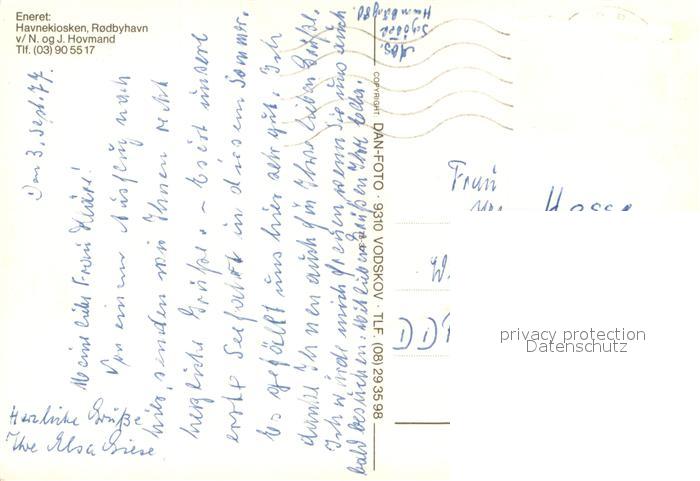 Eneret:
Havnekiosken, Rødbyhavn
v/ N. og J. Hovmand
Tlf. (03) 90 55 17
Den 3. Sept. 77.
Meine liebe Frau
Von einem Ausflug nach
hier, senden wir Ihnen recht
herzliche Grüße. - Es ist unsere
erste Seefahrt in diesem Sommer.
Es gefällt uns hier sehr gut. Ich
danke Ihnen auch für Ihre lieben Grüße.
Ich würde mich freuen wenn Sie uns auch
bald besuchen. Mit lieben Grüßen Ihre
Herzliche Grüße
Ihre Elsa Giese
Abs.
COPYRIGHT: DAN-FOTO · 9310 VODSKOV · TLF. (08) 29 35 98
Frau
W.
privacy protection
Datenschutz